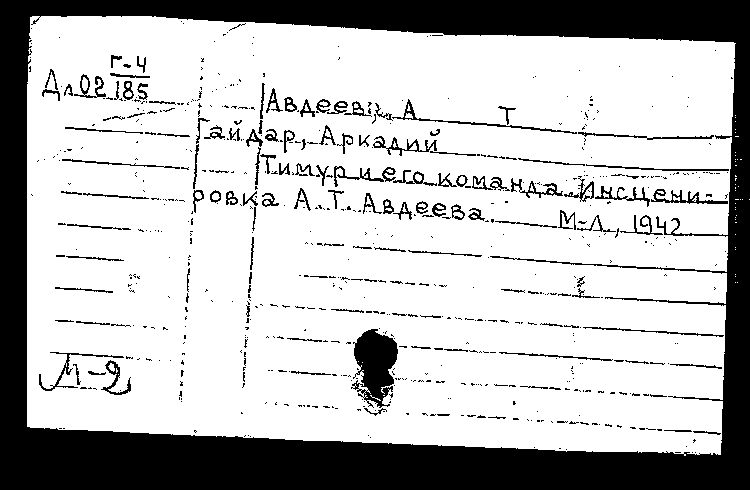 Г-4
Дл02 185
Авдеев, А Т
Гайдар, Аркадий
Тимур и его команда. Инсцени-
ровка А. Т. Авдеева. М-Л., 1942
М-2